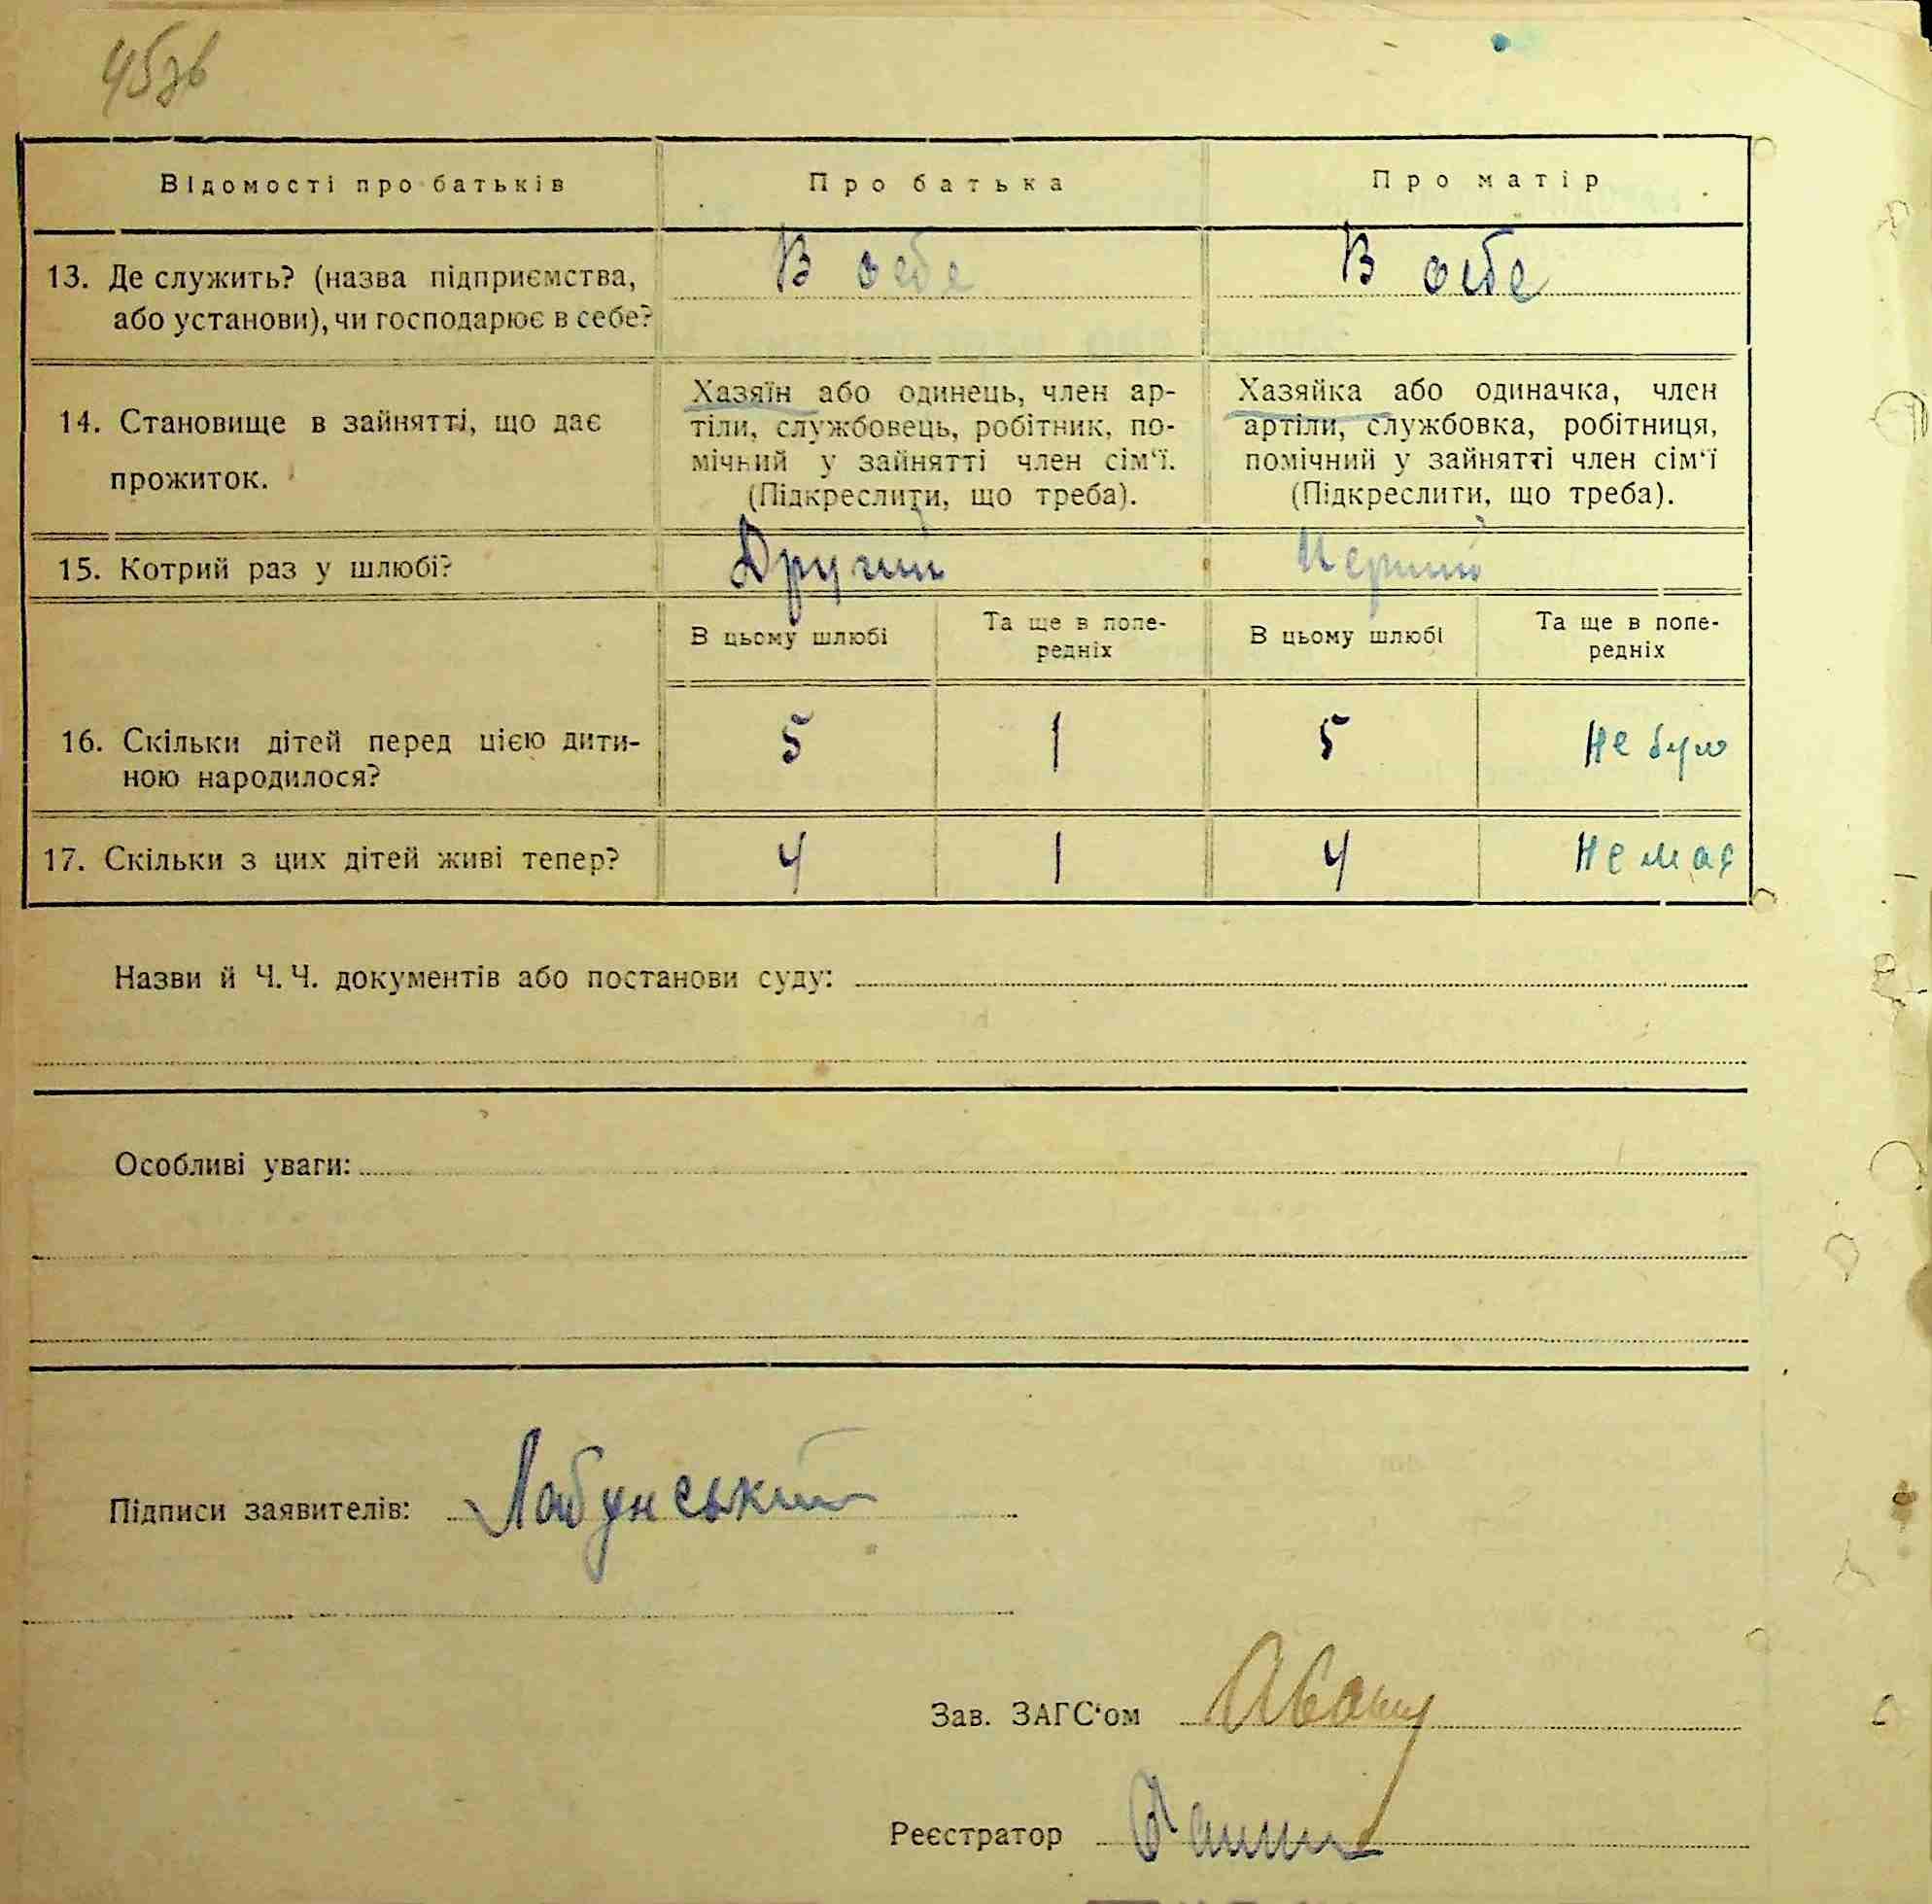 45зв
Відомості про батьків
Про батька
Про матір
13. Де служить? (назва підприємства,
або установи), чи господарює в себе?
В себе
В себе
14. Становище в зайнятті, що дає
прожиток.
Хазяїн або одинець, член ар-
тіли, службовець, робітник, по-
мічний у зайнятті член сім‘ї.
(Підкреслити, що треба).
Хазяйка або одиначка, член
артіли, службовка, робітниця,
помічний у зайнятті член сім‘ї
(Підкреслити, що треба).
15. Котрий раз у шлюбі?
Другий
Перший
В цьому шлюбі
Та ще в попе-
редніх
В цьому шлюбі
Та ще в попе-
редніх
16. Скільки дітей перед цією дити-
ною народилося?
5
1
5
Не було
17. Скільки з цих дітей живі тепер?
4
1
4
Немає
Назви й Ч. Ч. документів або постанови суду:
Особливі уваги:
Підписи заявителів: Лабунський
Зав. ЗАГС‘ом
Реєстратор